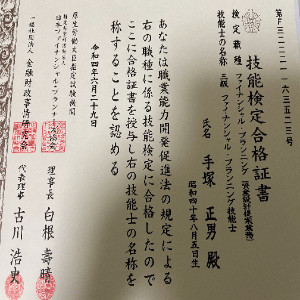 第F3211111-63523号
技能検定合格証書
検定職種 ファイナンシャル・プランニング(資産設計提案業務)
技能士の名称 三級ファイナンシャル・プランニング技能士
氏名 手塚 正男 殿
昭和四十年八月五日生
あなたは職業能力開発促進法の規定による
右の職種に係る技能検定に合格したので
ここに合格証書を授与し右の技能士の名称を
称することを認める
令和四年六月二十九日
厚生労働大臣指定試験機関
日本ファイナンシャル・プランナーズ協会
理事長 白根 壽晴
一般社団法人 金融財政事情研究会
代表理事 古川 浩史